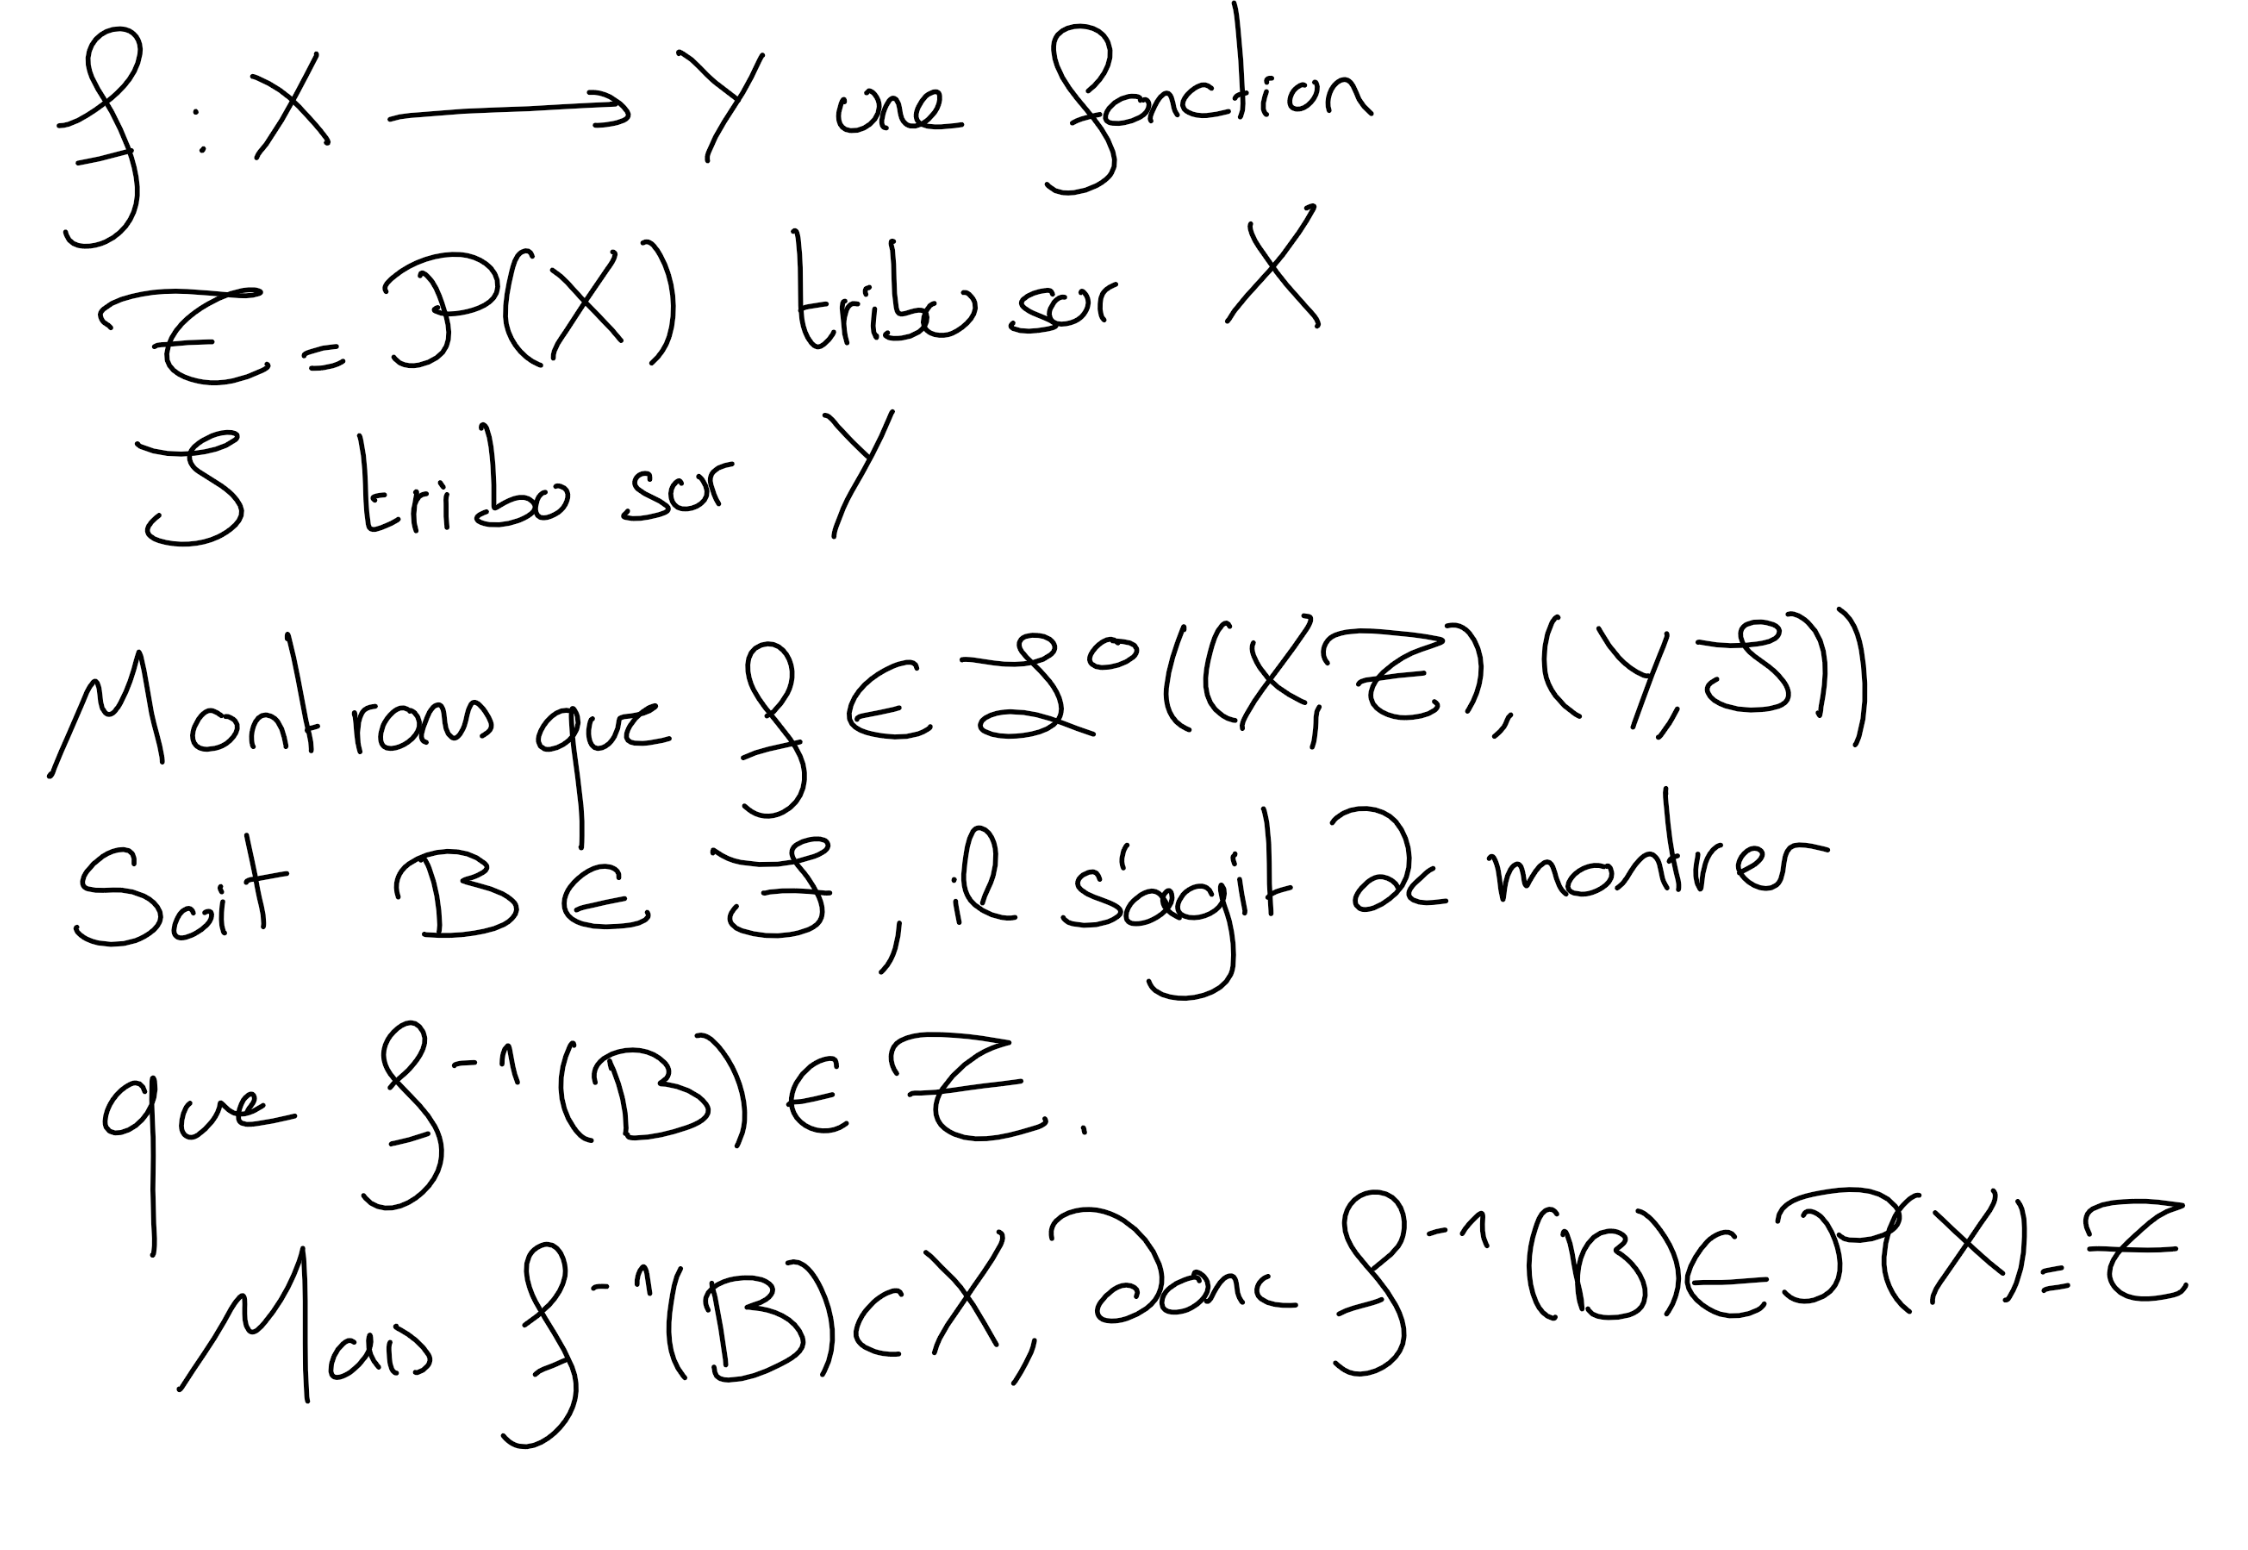 f : X ⟶ Y une fonction
Ƶ = P(X) tribu sur X
Y tribu sur Y
Montrons que f ∈ L⁰((X,Ƶ), (Y,Y))
Soit B ∈ Y, il s'agit de montrer
que f⁻¹(B) ∈ Ƶ.
Mais f⁻¹(B) ⊂ X, donc f⁻¹(B) ∈ P(X) = Ƶ